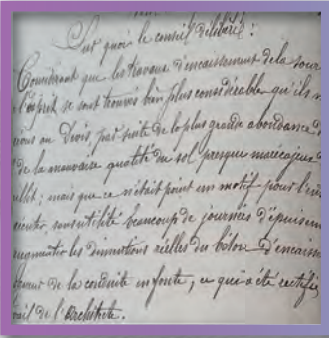 Sur quoi le conseil délibère :
Considérant que les travaux d'encaissement de la sour
à l'Esprit se sont trouvés bien plus considérable qu'ils n
au Devis, par suite de la plus grande abondance d
de la mauvaise qualité du sol presque marécageux d
; mais que ce n'était point un motif pour l'en
sans utilité beaucoup de journées d'épuisem
augmenter les dimensions réelles du béton d'encaiss
de la conduite en fonte ; ce qui a été rectifié
ail de l'architecte.